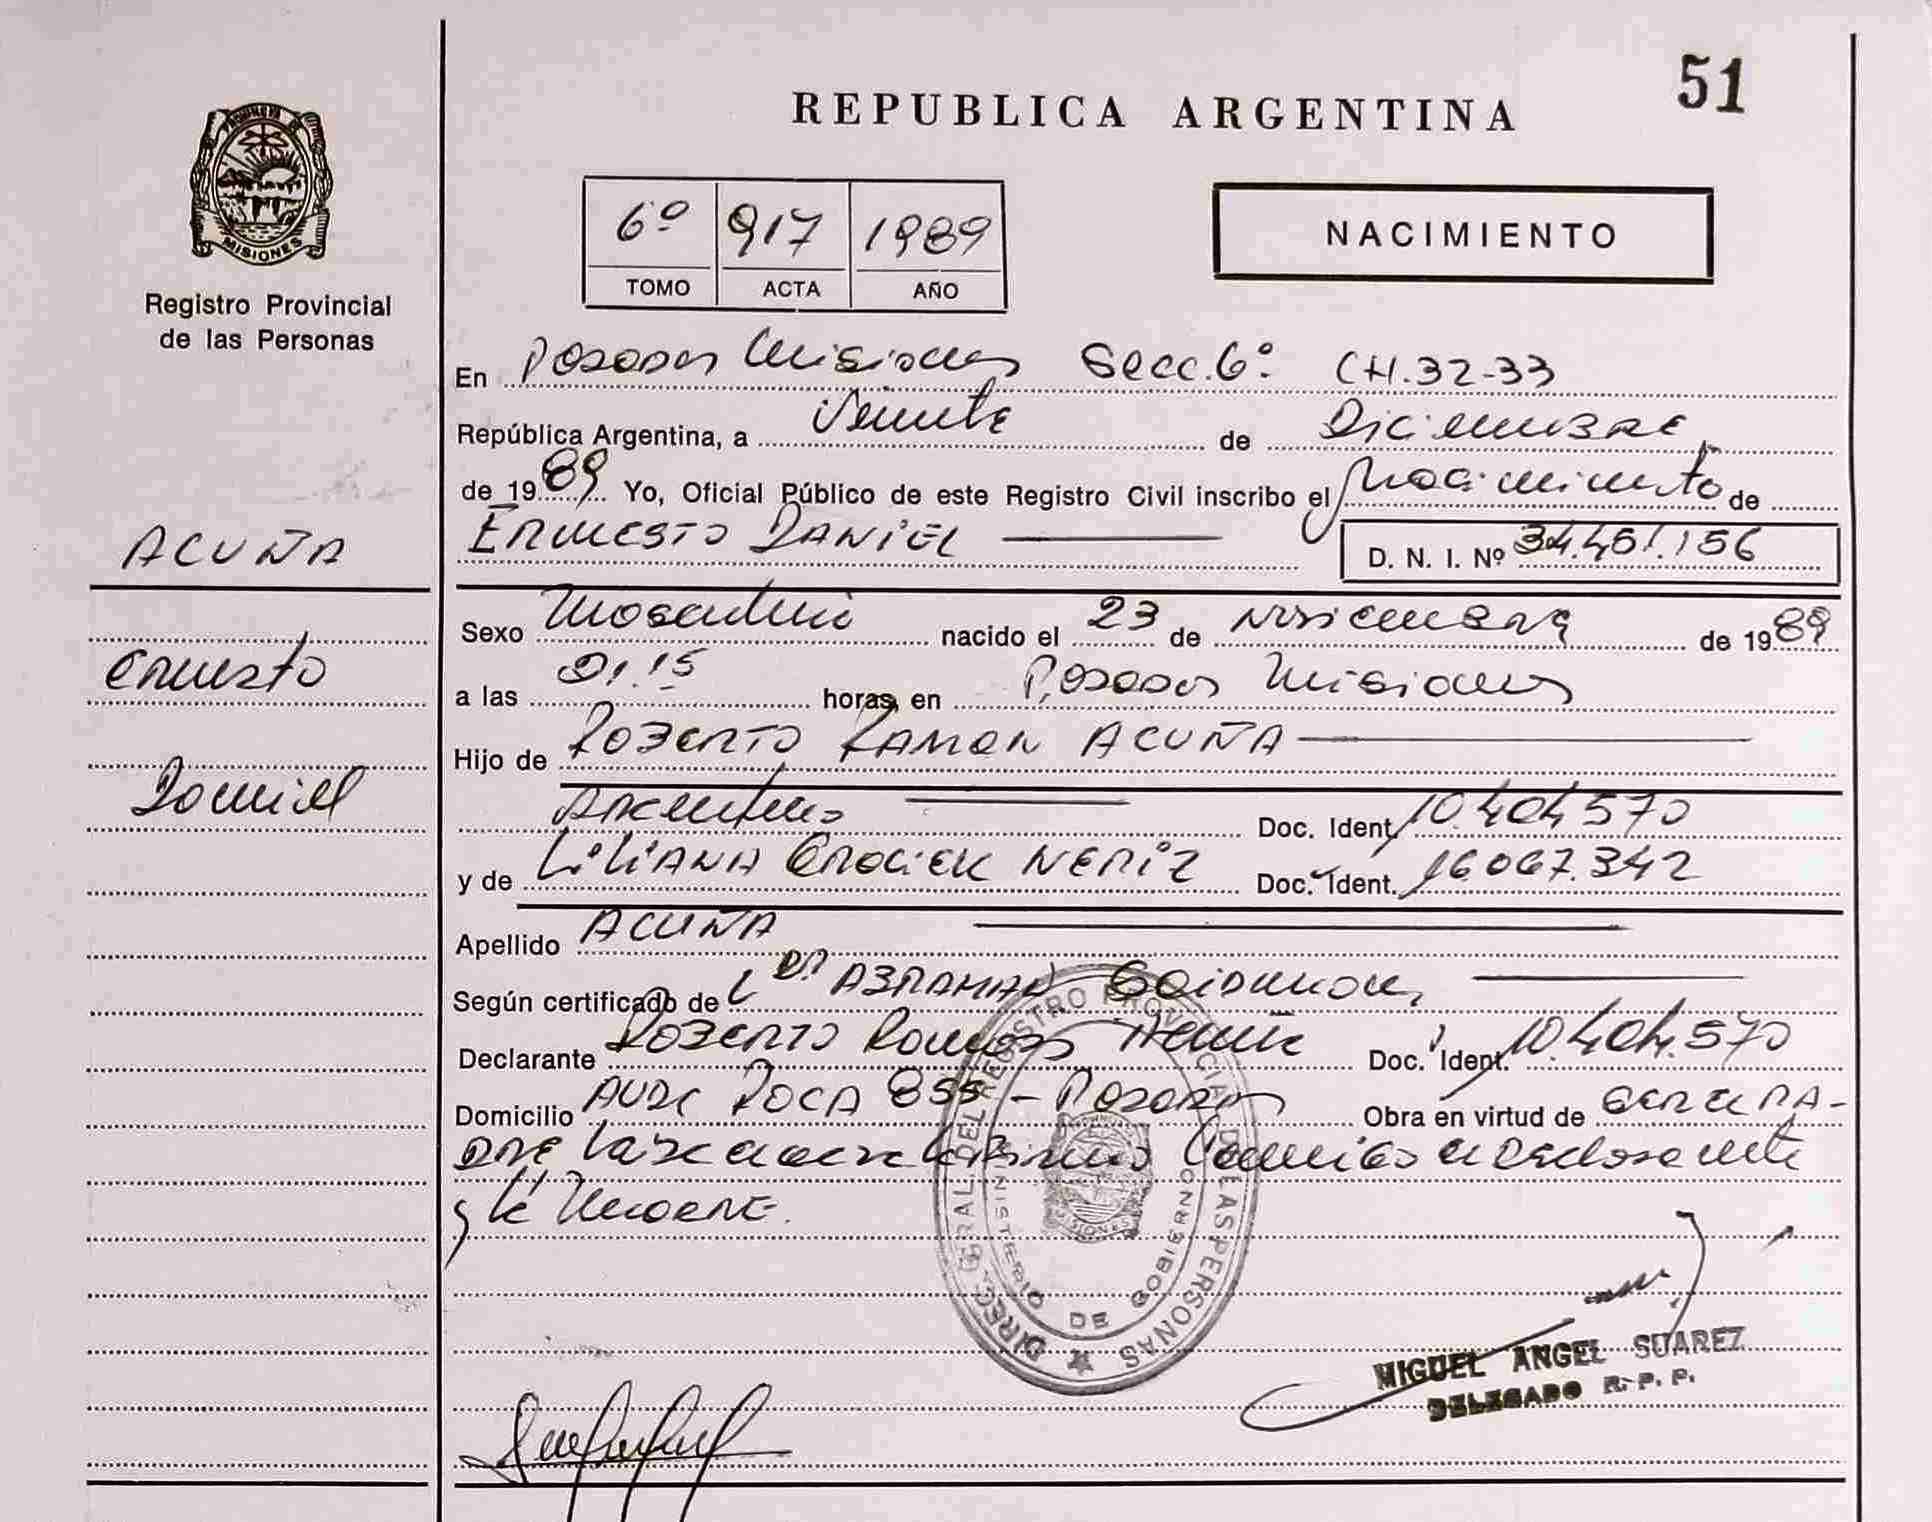 51
REPUBLICA ARGENTINA
PROVINCIA DE
MISIONES
Registro Provincial
de las Personas
6º 917 1989
TOMO ACTA AÑO
NACIMIENTO
En Posadas Misiones Secc. 6º CH. 32-33
República Argentina, a Veinte de Diciembre
de 1989. Yo, Oficial Público de este Registro Civil inscribo el Nacimiento de
ERNESTO DANIEL D. N. I. Nº 34.451.156
ACUÑA
Ernesto
Daniel
Sexo Masculino nacido el 23 de Noviembre de 1989
a las 01.15 horas, en Posadas Misiones
Hijo de ROBERTO RAMON ACUÑA
Argentino Doc. Ident. 10.404.570
y de LILIANA NERIZ Doc. Ident. 16.067.342
Apellido ACUÑA
Según certificado de ABRAHAM
Declarante Roberto Ramon Acuña Doc. Ident. 10.404.570
Domicilio AVDA ROCA 855 - Posadas Obra en virtud de
declarante
y
DIREC. GRAL. DEL REGISTRO PROVINCIAL DE LAS PERSONAS
MINISTERIO DE GOBIERNO
MISIONES
MIGUEL ANGEL SUAREZ
DELEGADO R. P. P.